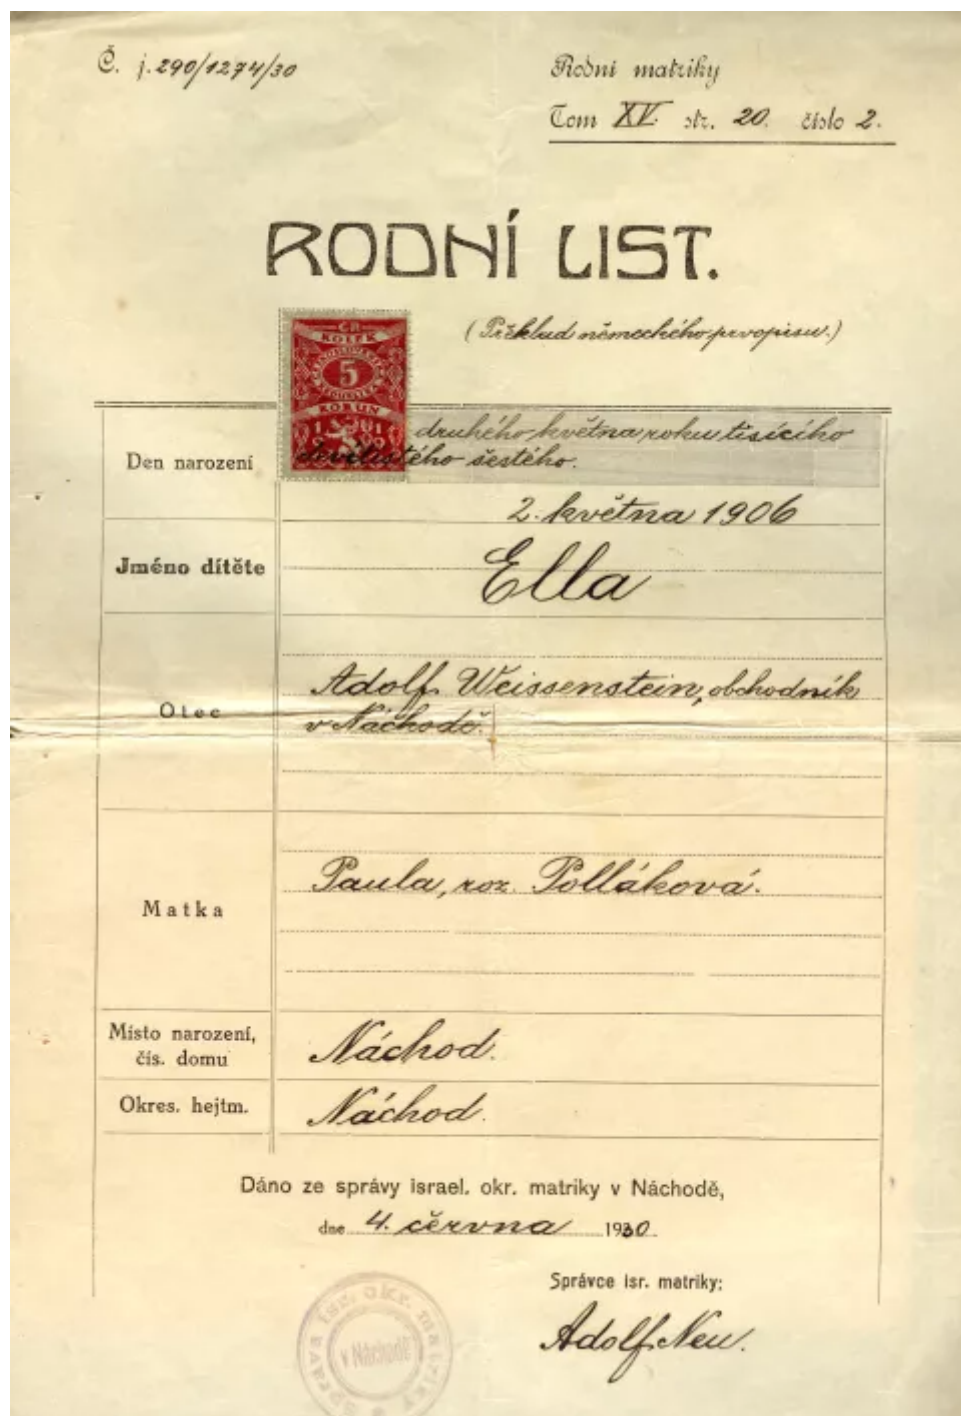 Č. j. 290/1274/30
Rodní matriky
Tom XV. str. 20. číslo 2.
RODNÍ LIST.
(Překlad německého prvopisu.)
ČR
KOLEK
5
KORUN
1
druhého května roku tisícího
devítistého šestého.
Den narození
2. května 1906
Jméno dítěte
Ella
Adolf Weissenstein, obchodník
Otec
v Náchodě.
Paula, roz. Polláková.
Matka
Místo narození,
čís. domu
Náchod.
Okres. hejtm.
Náchod.
Dáno ze správy israel. okr. matriky v Náchodě,
dne 4. června 1930.
Správce isr. matriky:
Adolf Neu.
Správa isr. okr. matriky
v Náchodě